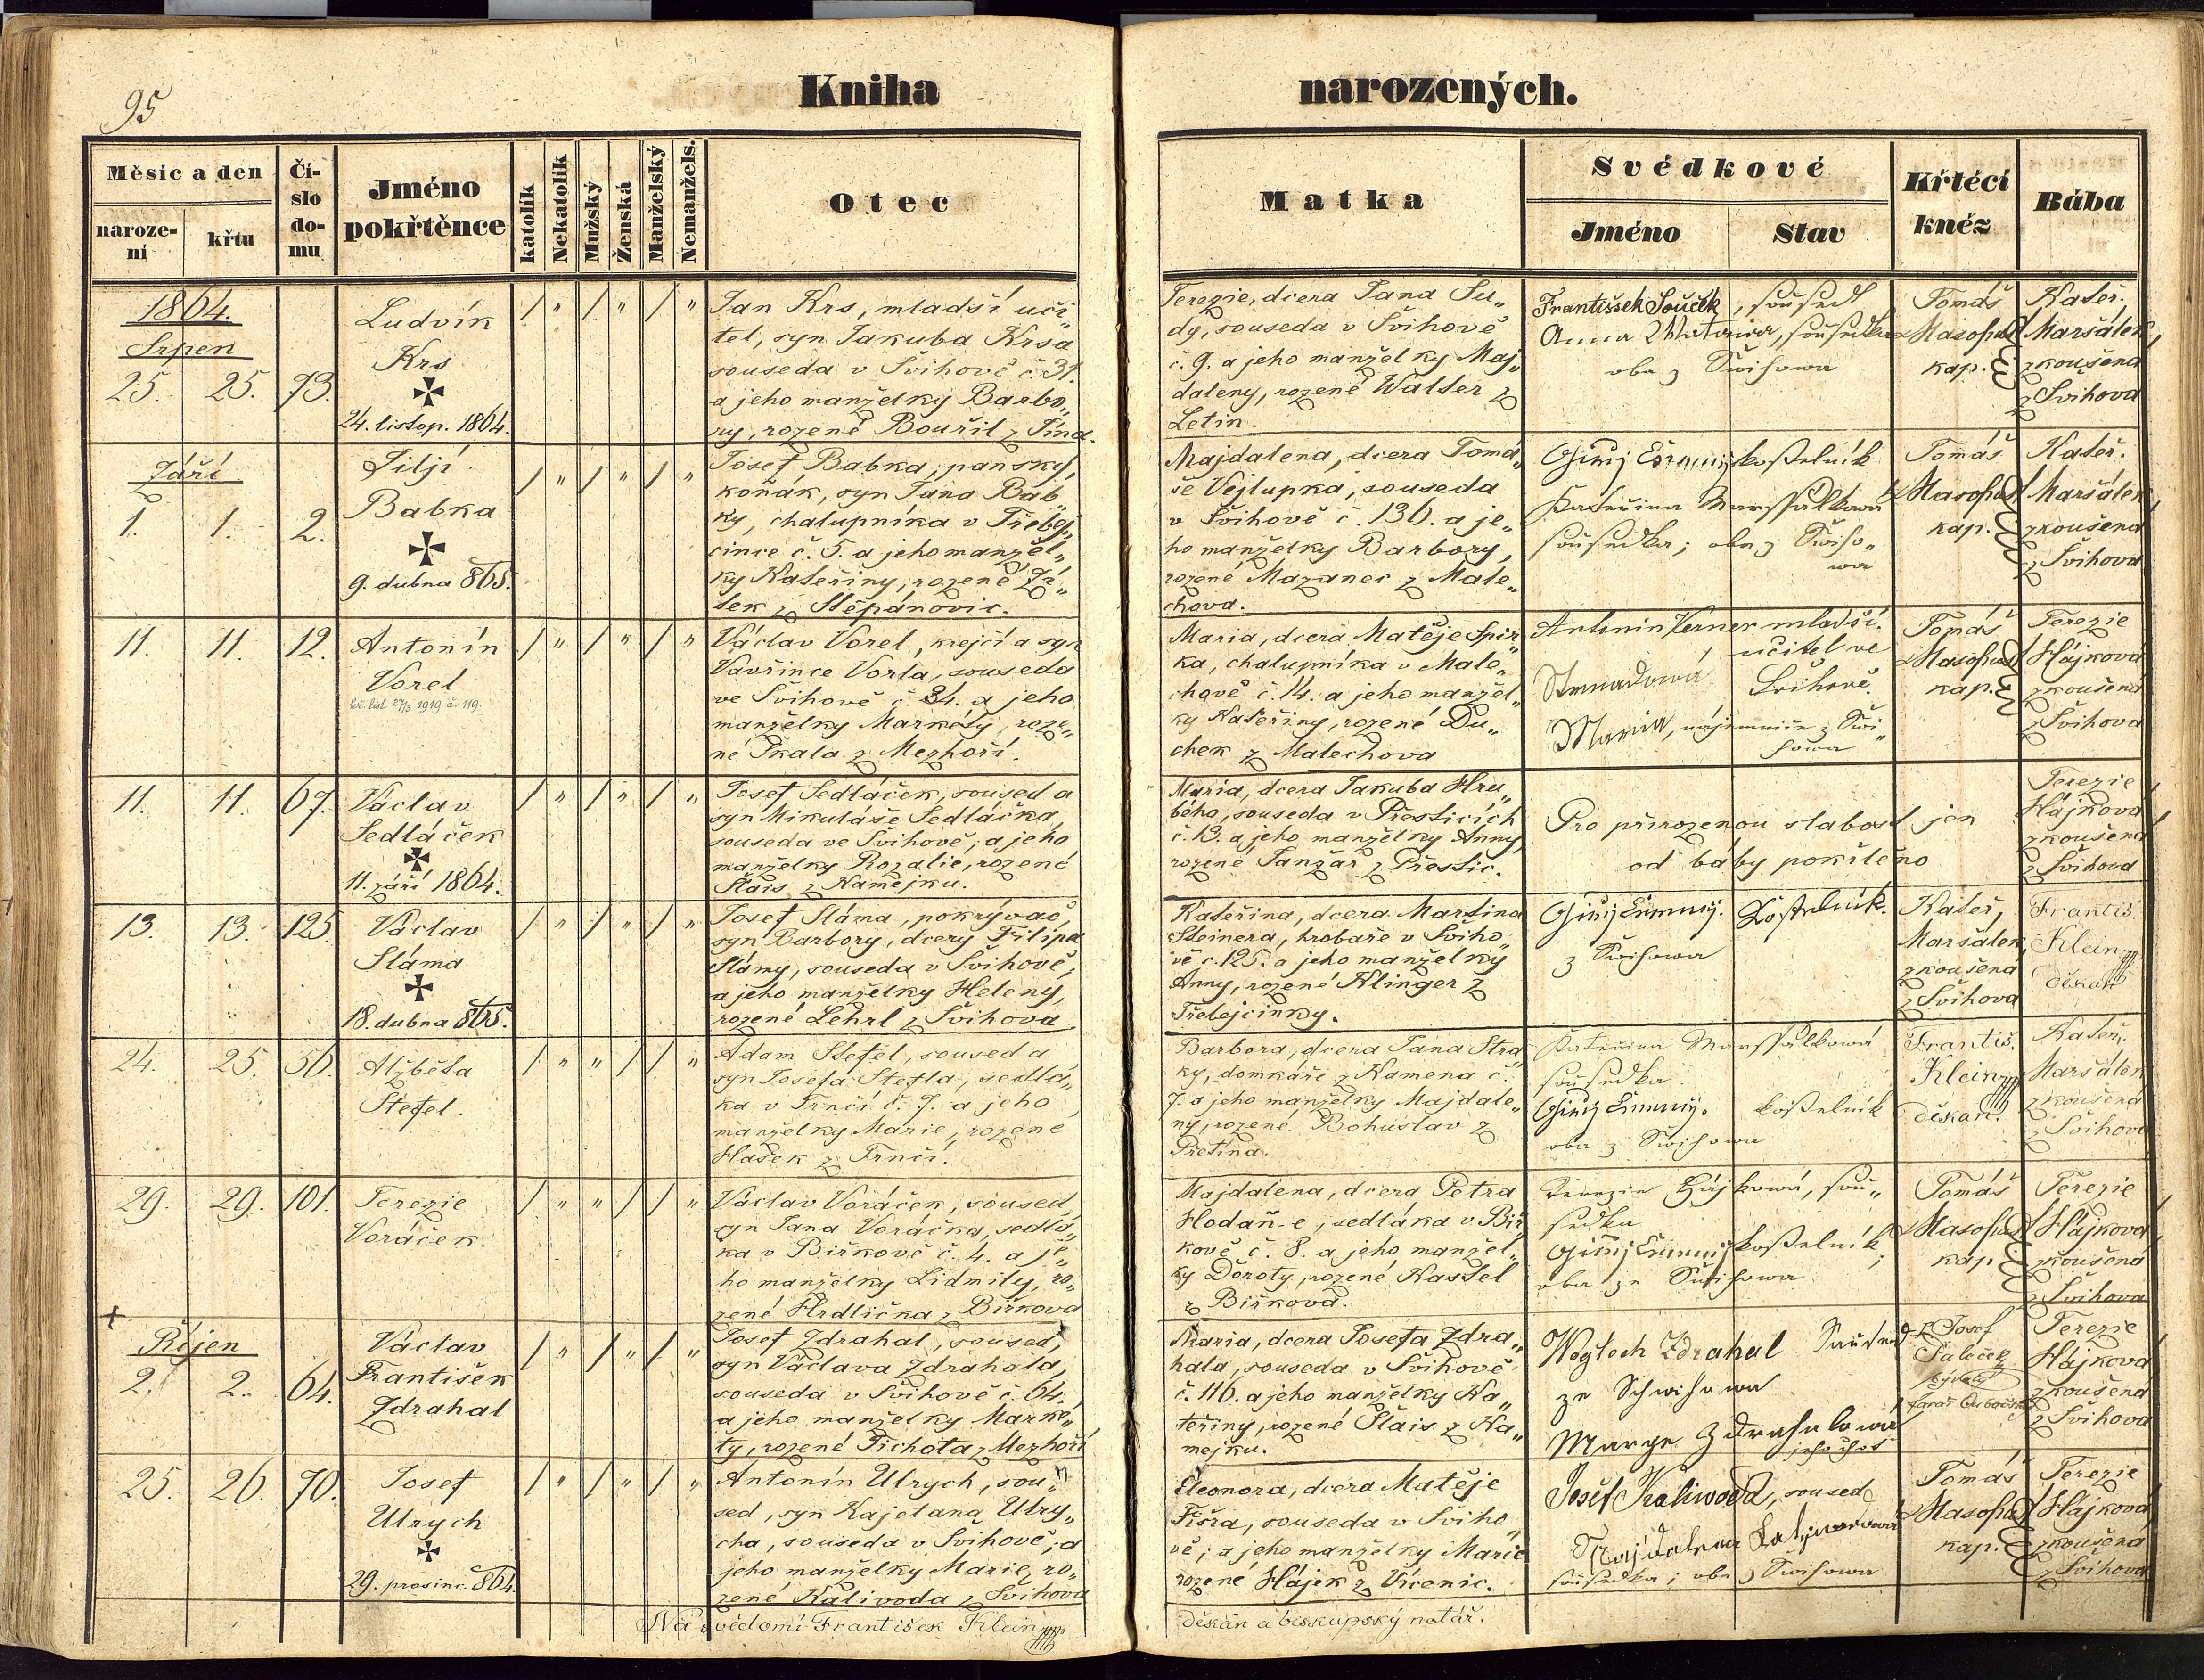 95
Kniha narozených.
Měsíc a den
naroze-
ní
křtu
Čí-
slo
do-
mu
Jméno
pokřtěnce
katolík
Nekatolík
Mužský
Ženská
Manželský
Nemanžels.
Otec
Matka
Svědkové
Jméno
Stav
Křtěcí
kněz
Bába
1864.
Srpen
25. 25. 73.
Ludvík
Krs
24. listop. 1864.
/ " / " / "
Jan Krs, mladší uči„
tel, syn Jakuba Krsa
souseda v Švihově č. 31.
a jeho manželky Barbo„
ry, rozené Bouřil z Jína.
Terezie, dcera Jana Su„
dy, souseda v Švihově
č. 9. a jeho manželky Maj„
daleny, rozené Walter z
Letin.
František Souček, soused
Anna
oba z Švihova
Tomáš
Masopust
kap.
Kateř.
Maršálek,
zkoušená
z Švihova
Září
1. 1. 2.
Jiljí
Babka
9. dubna 865.
/ " / " / "
Josef Babka, panský
koňák, syn Jána Bab„
ky, chalupníka v Třebej„
cince č. 5. a jeho manžel„
ky Kateřiny, rozené Ží„
tek z Štěpánovic.
Majdalena, dcera Tomá„
še Vejlupka, souseda
v Švihově č. 130. a je„
ho manželky Barbory,
rozené Mazanec z Male„
chova.
kostelník
Kateřina Marssálkowá
sousedka; oba z Swiho„
wa
Tomáš
Masopust
kap.
Kateř.
Maršálek,
zkoušená
z Švihova
11. 11. 12.
Antonín
Vorel
/ " / " / "
Václav Vorel, krejčí a syn
Vavřince Vorla, souseda
ve Švihově č. 34. a jeho
manželky Markéty, roze„
né Škala z Mezhoří.
Maria, dcera Matěje Špir„
ka, chalupníka v Male„
chově č. 14. a jeho manžel„
ky Kateřiny, rozené Du„
chek z Malechova
Antonin Verner mladší.
učitel ve
Švihově.
Strnadowá
Maria, nájemnice z Swi„
howa
Tomáš
Masopust
kap.
Terezie
Hájková
zkoušená
z Švihova
11. 11. 67.
Václav
Sedláček
11. září 1864.
/ " / " / "
Josef Sedláček, soused a
syn Mikuláše Sedláčka,
souseda ve Švihově, a jeho
manželky Rozalie, rozené
Šlais z Kamejku.
Maria, dcera Jakuba Hru„
bého, souseda v Přešticích
č. 19. a jeho manželky Anny,
rozené Janžar z Přeštic.
Pro přirozenou slabost jen
od báby pokřtěno
Terezie
Hájková,
zkoušená
z Švihova
13. 13. 125.
Václav
Sláma
18. dubna 865.
/ " / " / "
Josef Sláma, pokrývač,
syn Barbory, dcery Filipa
Slámy, souseda v Švihově,
a jeho manželky Heleny,
rozené Lehrl z Švihova
Kateřina, dcera Martina
Steinera, hrobaře v Šviho„
vě č. 125. a jeho manželky
Anny, rozené Klinger z
Třebejcinky.
kostelník.
z Swihowa
Kateř.
Maršálek,
zkoušená
z Švihova
Františ.
Klein
děkan
24. 25. 56.
Alžběta
Štefel.
/ " " / / "
Adam Štefel, soused a
syn Josefa Štefla, sedlá„
ka v Trnčí č. 7. a jeho
manželky Marie, rozené
Hašek z Trnčí.
Barbora, dcera Jana Stra„
ky, domkáře z Kamena č.
7. a jeho manželky Majdale„
ny, rozené Bohuslav z
Přetína.
Kateřina Marssálkowá
sousedka
kostelník
oba z Swihowa
Františ.
Klein
děkan.
Kateř.
Maršálek
zkoušená
z Švihova
29. 29. 101.
Terezie
Voráček.
/ " " / / "
Václav Voráček, soused,
syn Jana Voráčka, sedlá„
ka v Biřkově č. 4. a je„
ho manželky Lidmily, ro„
zené Hrdlička z Biřkova
Majdalena, dcera Petra
Hodaň-e, sedláka v Biř„
kově č. 8. a jeho manžel„
ky Doroty, rozené Kastel
z Biřkova.
Terezie Hájkowá, sou„
sedka
kostelník;
oba ze Swihowa
Tomáš
Masopust
kap.
Terezie
Hájková,
zkoušená
z Švihova
Říjen
2. 2. 64.
Václav
František
Zdrahal
/ " / " / "
Josef Zdrahal, soused,
syn Václava Zdrahala,
souseda v Švihově č. 64.
a jeho manželky Marké„
ty, rozené Tichota z Mezhoří
Maria, dcera Josefa Zdra„
hala, souseda v Švihově
č. 116. a jeho manželky Ka„
teřiny, rozené Šlais z Ka„
mejku.
Wogtech Zdrahal Soused
ze Schwihowa
Marye Zdrahalowá
jeho choť
Josef
Terezie
Hájková
zkoušená
z Švihova
25. 26. 70.
Josef
Ulrych
29. prosinc. 864.
/ " / " / "
Antonín Ulrych, sou„
sed, syn Kajetana Ulry„
cha, souseda v Švihově, a
jeho manželky Marie, ro„
zené Kalivoda z Švihova
Eleonora, dcera Matěje
Fišra, souseda v Šviho„
vě; a jeho manželky Marie
rozené Hájek z Vícenic.
Josef Kaliwoda, soused
Majdalena Kaliwodowa
sousedka; oba z Swihowa
Tomáš
Masopust
kap.
Terezie
Hájková,
zkoušená
z Švihova
Na svědomí František Klein
děkan a biskupský notář.